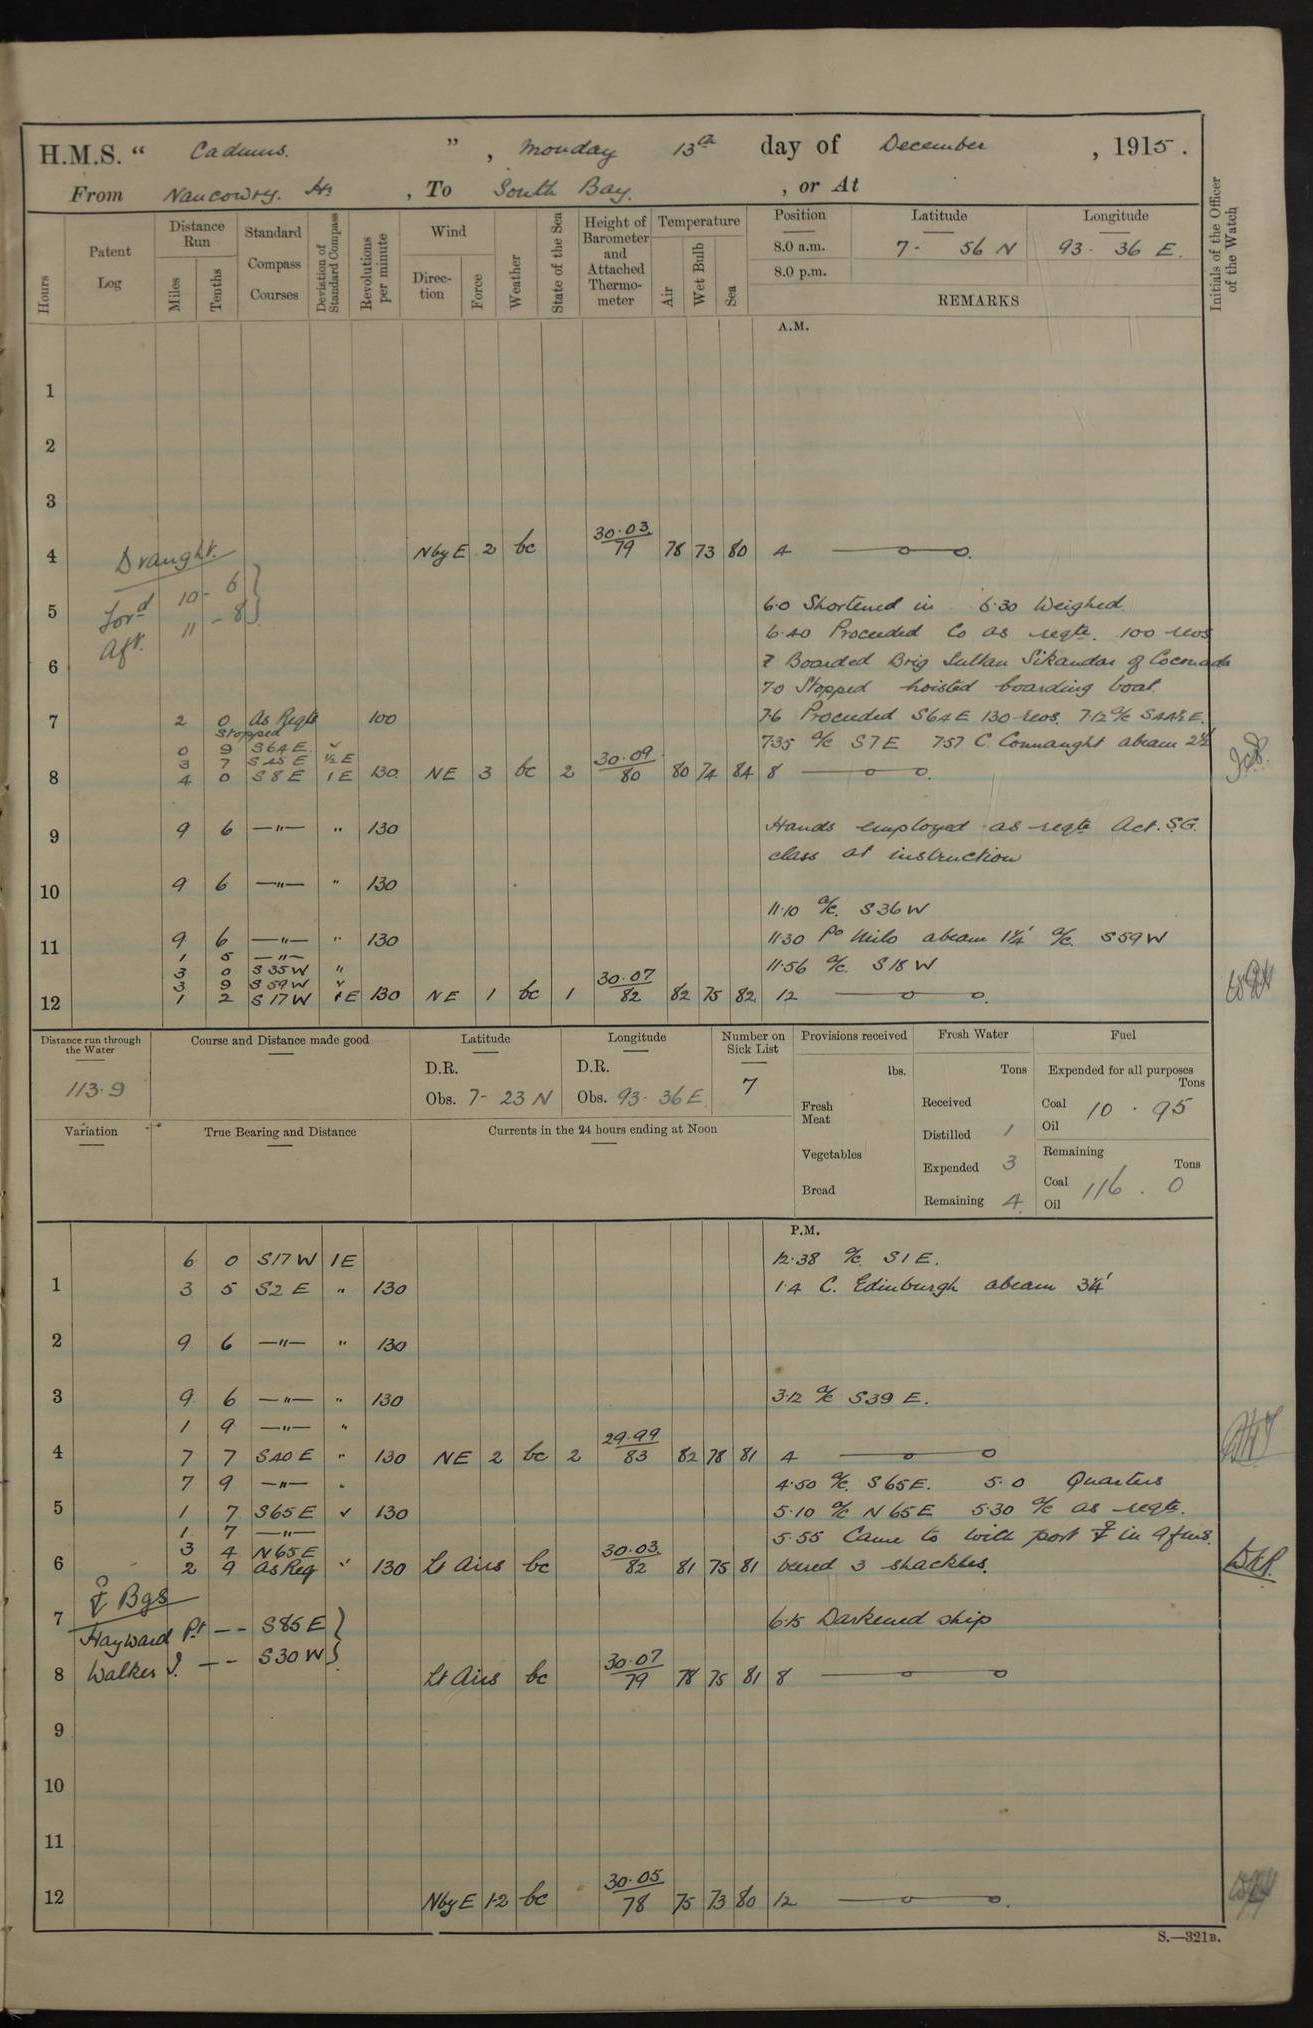 H.M.S. “ Cadmus. ” , Monday 13th day of December , 1915 .
From Nancowry. Hr , To South Bay. , or At
Hours
Patent Log
Distance Run
Miles
Tenths
Standard Compass Courses
Deviation of Standard Compass
Revolutions per minute
Wind
Direction
Force
Weather
State of the Sea
Height of Barometer and Attached Thermometer
Temperature
Air
Wet Bulb
Sea
Position Latitude Longitude
8.0 a.m. 7 - 56 N 93 - 36 E.
8.0 p.m.
REMARKS
Initials of the Officer of the Watch
A.M.
1
2
3
4 N by E 2 bc 30.03 / 79 78 73 80 4
Draught.
Ford 10 - 6 }
Aft. 11 - 8 }
5 6.0 Shortened in 6.30 Weighed.
6.40 Proceeded Co as reqte. 100 revs
6 7 Boarded Brig Sultan Sikandar of Coconada
7.0 Stopped hoisted boarding boat.
7 2 0 As Reqte 100 7.6 Proceeded S64E 130 revs. 7.12 a/c S44½E.
Stopped
0 9 S64E. ✓ 7.35 a/c S7E 7.57 C. Connaught abeam 2½
3 7 S45E ½E
8 4 0 S8E 1E 130. NE 3 bc 2 30.09 / 80 80 74 84 8
9 9 6 —"— " 130 Hands employed as reqte Act. S.G.
class at instruction
10 9 6 —"— " 130
11.10 a/c. S36W
11 9 6 —"— " 130 11.30 Po Milo abeam 1¼' a/c. S59W
1 5 —"—
3 0 S35W " 11.56 a/c. S18W
3 9 S59W ✓
12 1 2 S17W 1E 130 NE 1 bc 1 30.07 / 82 82 75 82 12
Distance run through the Water
113.9
Course and Distance made good
Latitude
D.R.
Obs. 7 - 23 N
Longitude
D.R.
Obs. 93 - 36 E
Number on Sick List
7
Provisions received
lbs.
Fresh Meat
Vegetables
Bread
Fresh Water
Tons
Received
Distilled 1
Expended 3
Remaining 4
Fuel
Expended for all purposes
Tons
Coal 10 . 95
Oil
Remaining
Tons
Coal 116 . 0
Oil
Variation
True Bearing and Distance
Currents in the 24 hours ending at Noon
P.M.
6 0 S17W 1E 12.38 a/c S1E.
1 3 5 S2E " 130 1.4 C. Edinburgh abeam 3¼'
2 9 6 —"— " 130
3 9 6 —"— " 130 3.12 a/c S39E.
1 9 —"— "
4 7 7 S40E " 130 NE 2 bc 2 29.99 / 83 82 78 81 4
7 9 —"— " 4.50 a/c. S65E. 5.0 Quarters
5 1 7 S65E ✓ 130 5.10 a/c N65E 5.30 a/c as reqte.
1 7 —"— 5.55 Came to with port ⚓ in 9 fms.
3 4 N65E
6 2 9 As Req ✓ 130 Lt Airs bc 30.03 / 82 81 75 81 veered 3 shackles.
⚓ Bgs
7 Hayward Pt -- S85E } 6.15 Darkened ship
Walker I. -- S30W }
8 Lt Airs bc 30.07 / 79 78 75 81 8
9
10
11
12 N by E 1-2 bc 30.05 / 78 75 73 80 12
S.—321B.